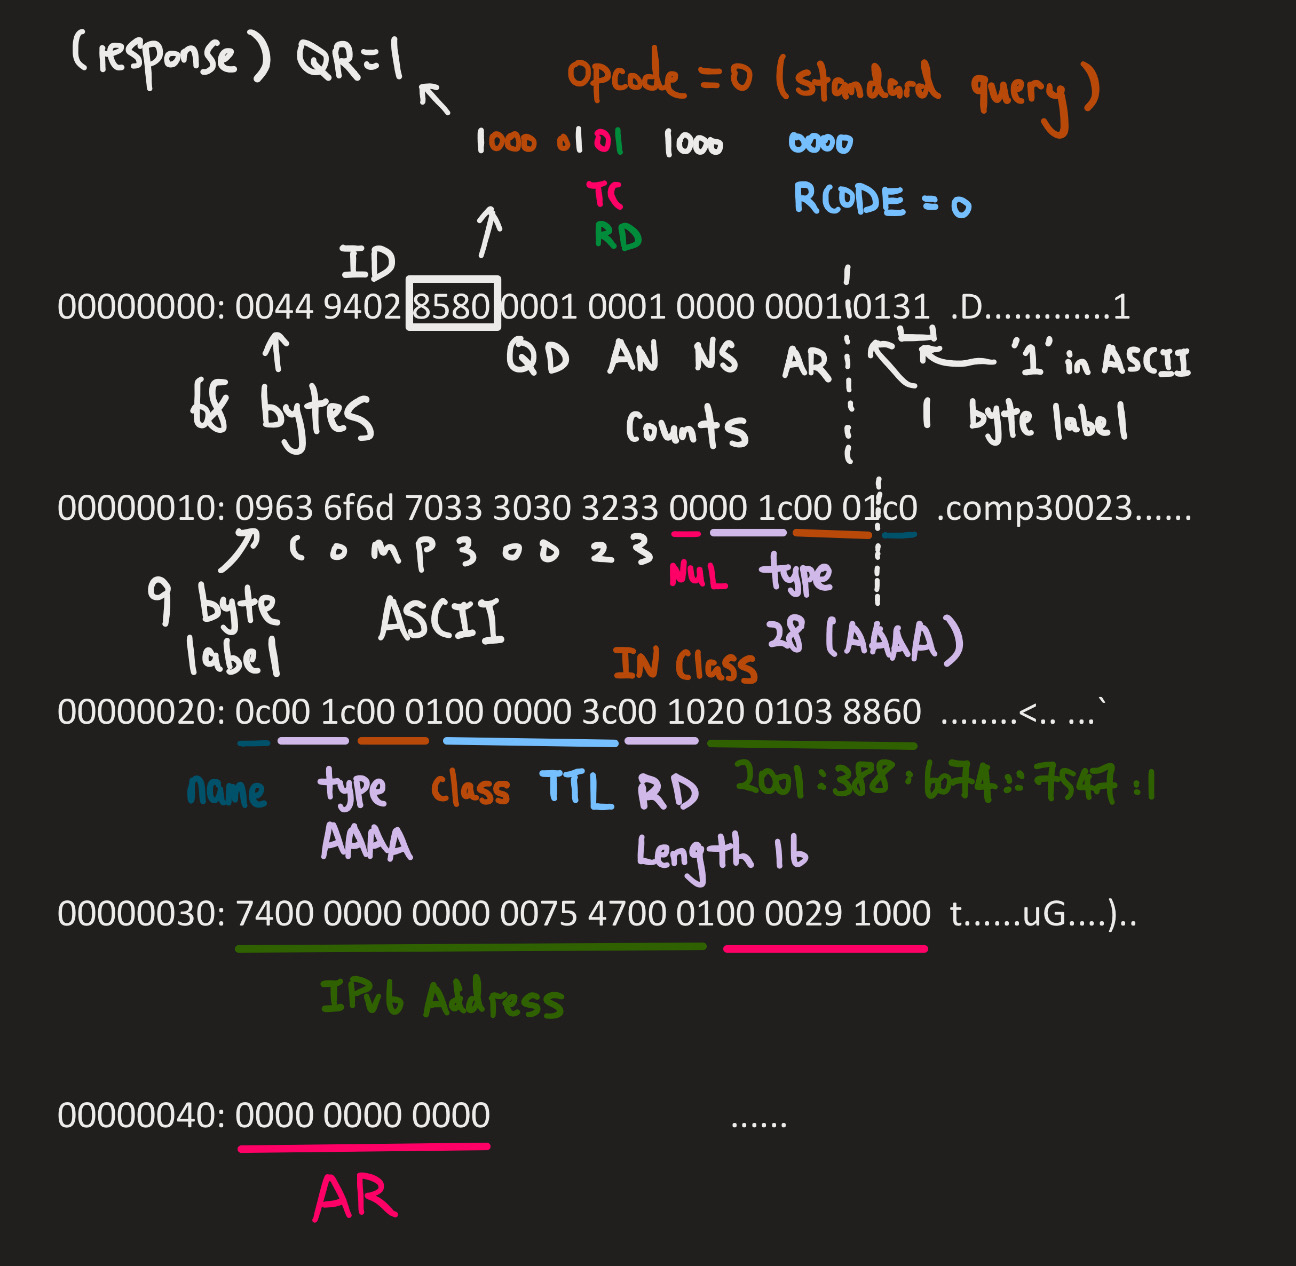 (response) QR=1
Opcode = 0 (standard query)
1000 0101 1000 0000
TC
RD
RCODE = 0
ID
00000000: 0044 9402 8580 0001 0001 0000 0001 0131 .D.............1
QD AN NS AR
'1' in ASCII
68 bytes
counts
1 byte label
00000010: 0963 6f6d 7033 3030 3233 0000 1c00 01c0 .comp30023......
c o m p 3 0 0 2 3
9 byte label
ASCII
NUL
type
28 (AAAA)
IN Class
00000020: 0c00 1c00 0100 0000 3c00 1020 0103 8860 ........<.. ...`
name
type AAAA
class
TTL
RD Length 16
2001:388:6074::7547:1
00000030: 7400 0000 0000 0075 4700 0100 0029 1000 t......uG....)..
IPv6 Address
00000040: 0000 0000 0000 ......
AR